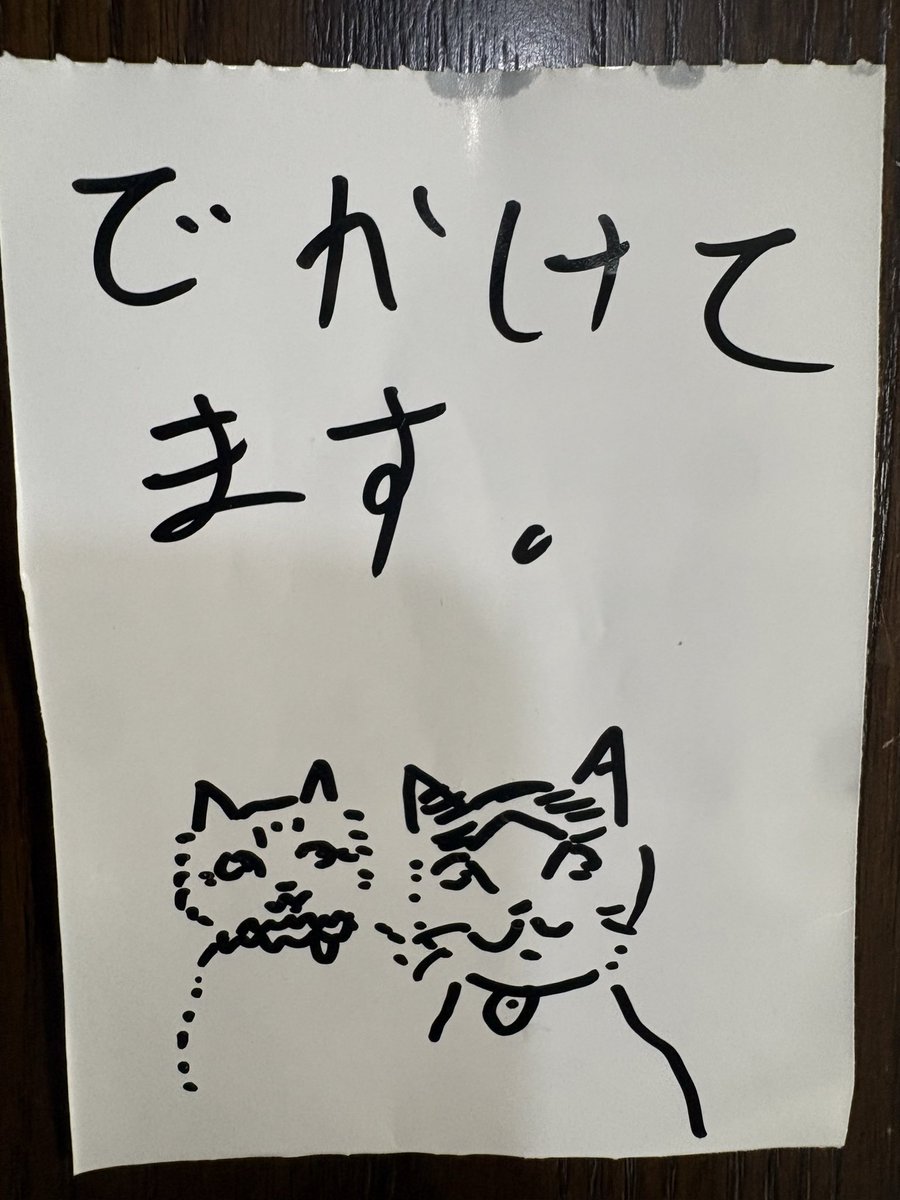 でかけて
ます。